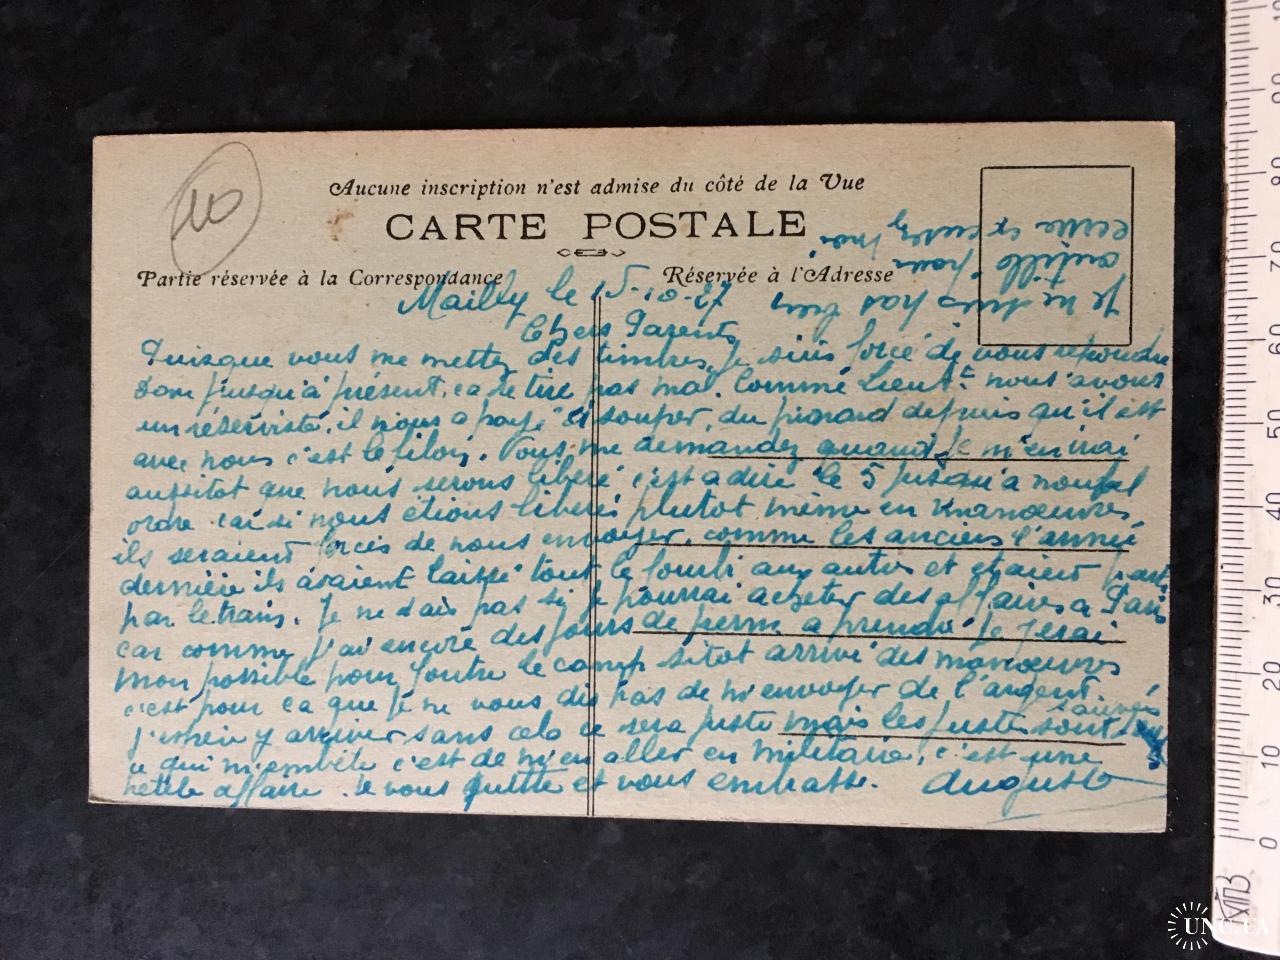 10
Aucune inscription n'est admise du côté de la Vue
CARTE POSTALE
Partie réservée à la Correspondance
Réservée à l'Adresse
Je ne suis pas bien
outillé pour
écrire excusez moi
Mailly le 15-10-27
Chers Parents
Puisque vous me mettez des timbres, je suis forcé de vous répondre
jusqu'à présent, ca se tire pas mal. Comme Lieut. nous avons
un réserviste, il nous a payé à souper, du pinard depuis qu'il est
avec nous c'est le filon. Vous me demandez quand je m'en irai
aussitot que nous serons libéré c'est a dire le 5 jusqu'a nouvel
ordre car si nous étions libérés plutot même en manœuvres
ils seraient forcés de nous envoyer, comme les anciens l'année
dernière ils avaient laissé tout le fourbi aux autres et étaient partis
par le train. Je ne sais pas si je pourrai acheter des affaires a Paris
car comme j'ai encore des jours de perm a prendre je ferai
mon possible pour foutre le camp sitot arrivé des manœuvres
c'est pour ca que je ne vous dis pas de m'envoyer de l'argent.
j'espère y arriver sans cela ce sera juste mais les justes sont sauvés
ce qui m'embête c'est de m'en aller en militaire, c'est une
affaire. Je vous quitte et vous embrasse. Auguste
0 10 20 30 40 50 60 70 80 90
UNC.UA